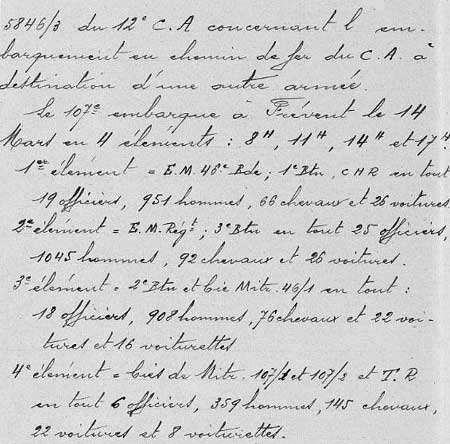 5846/3 du 12e C.A concernant l'em-
barquement en chemin de fer du C.A. à
destination d'une autre armée.
Le 107e embarque à Frévent le 14
Mars en 4 éléments : 8H, 11H, 14H et 17H.
1er élément = E.M. 46e Bde ; 1e Btn, CHR en tout
19 officiers, 951 hommes, 66 chevaux et 26 voitures
2e élément = E.M. Régt ; 3e Btn en tout 25 officiers,
1045 hommes, 92 chevaux et 26 voitures.
3e élément = 2e Btn et Cie Mitr. 46/1 en tout :
18 officiers, 908 hommes, 76 chevaux et 22 voi-
tures et 16 voiturettes
4e élément = Cies de Mitr. 107/1 et 107/2 et T.R
en tout 6 officiers, 359 hommes, 145 chevaux,
22 voitures et 8 voiturettes.